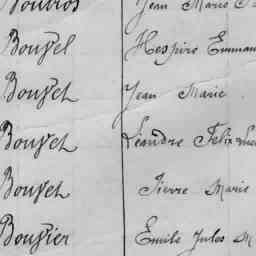 Jean Marie
Bouyel Hespire Emman
Bouyet Jean Marie
Bouyet Léandre Felix
Bouyet Pierre Marie
Bouyier Emile Jules M